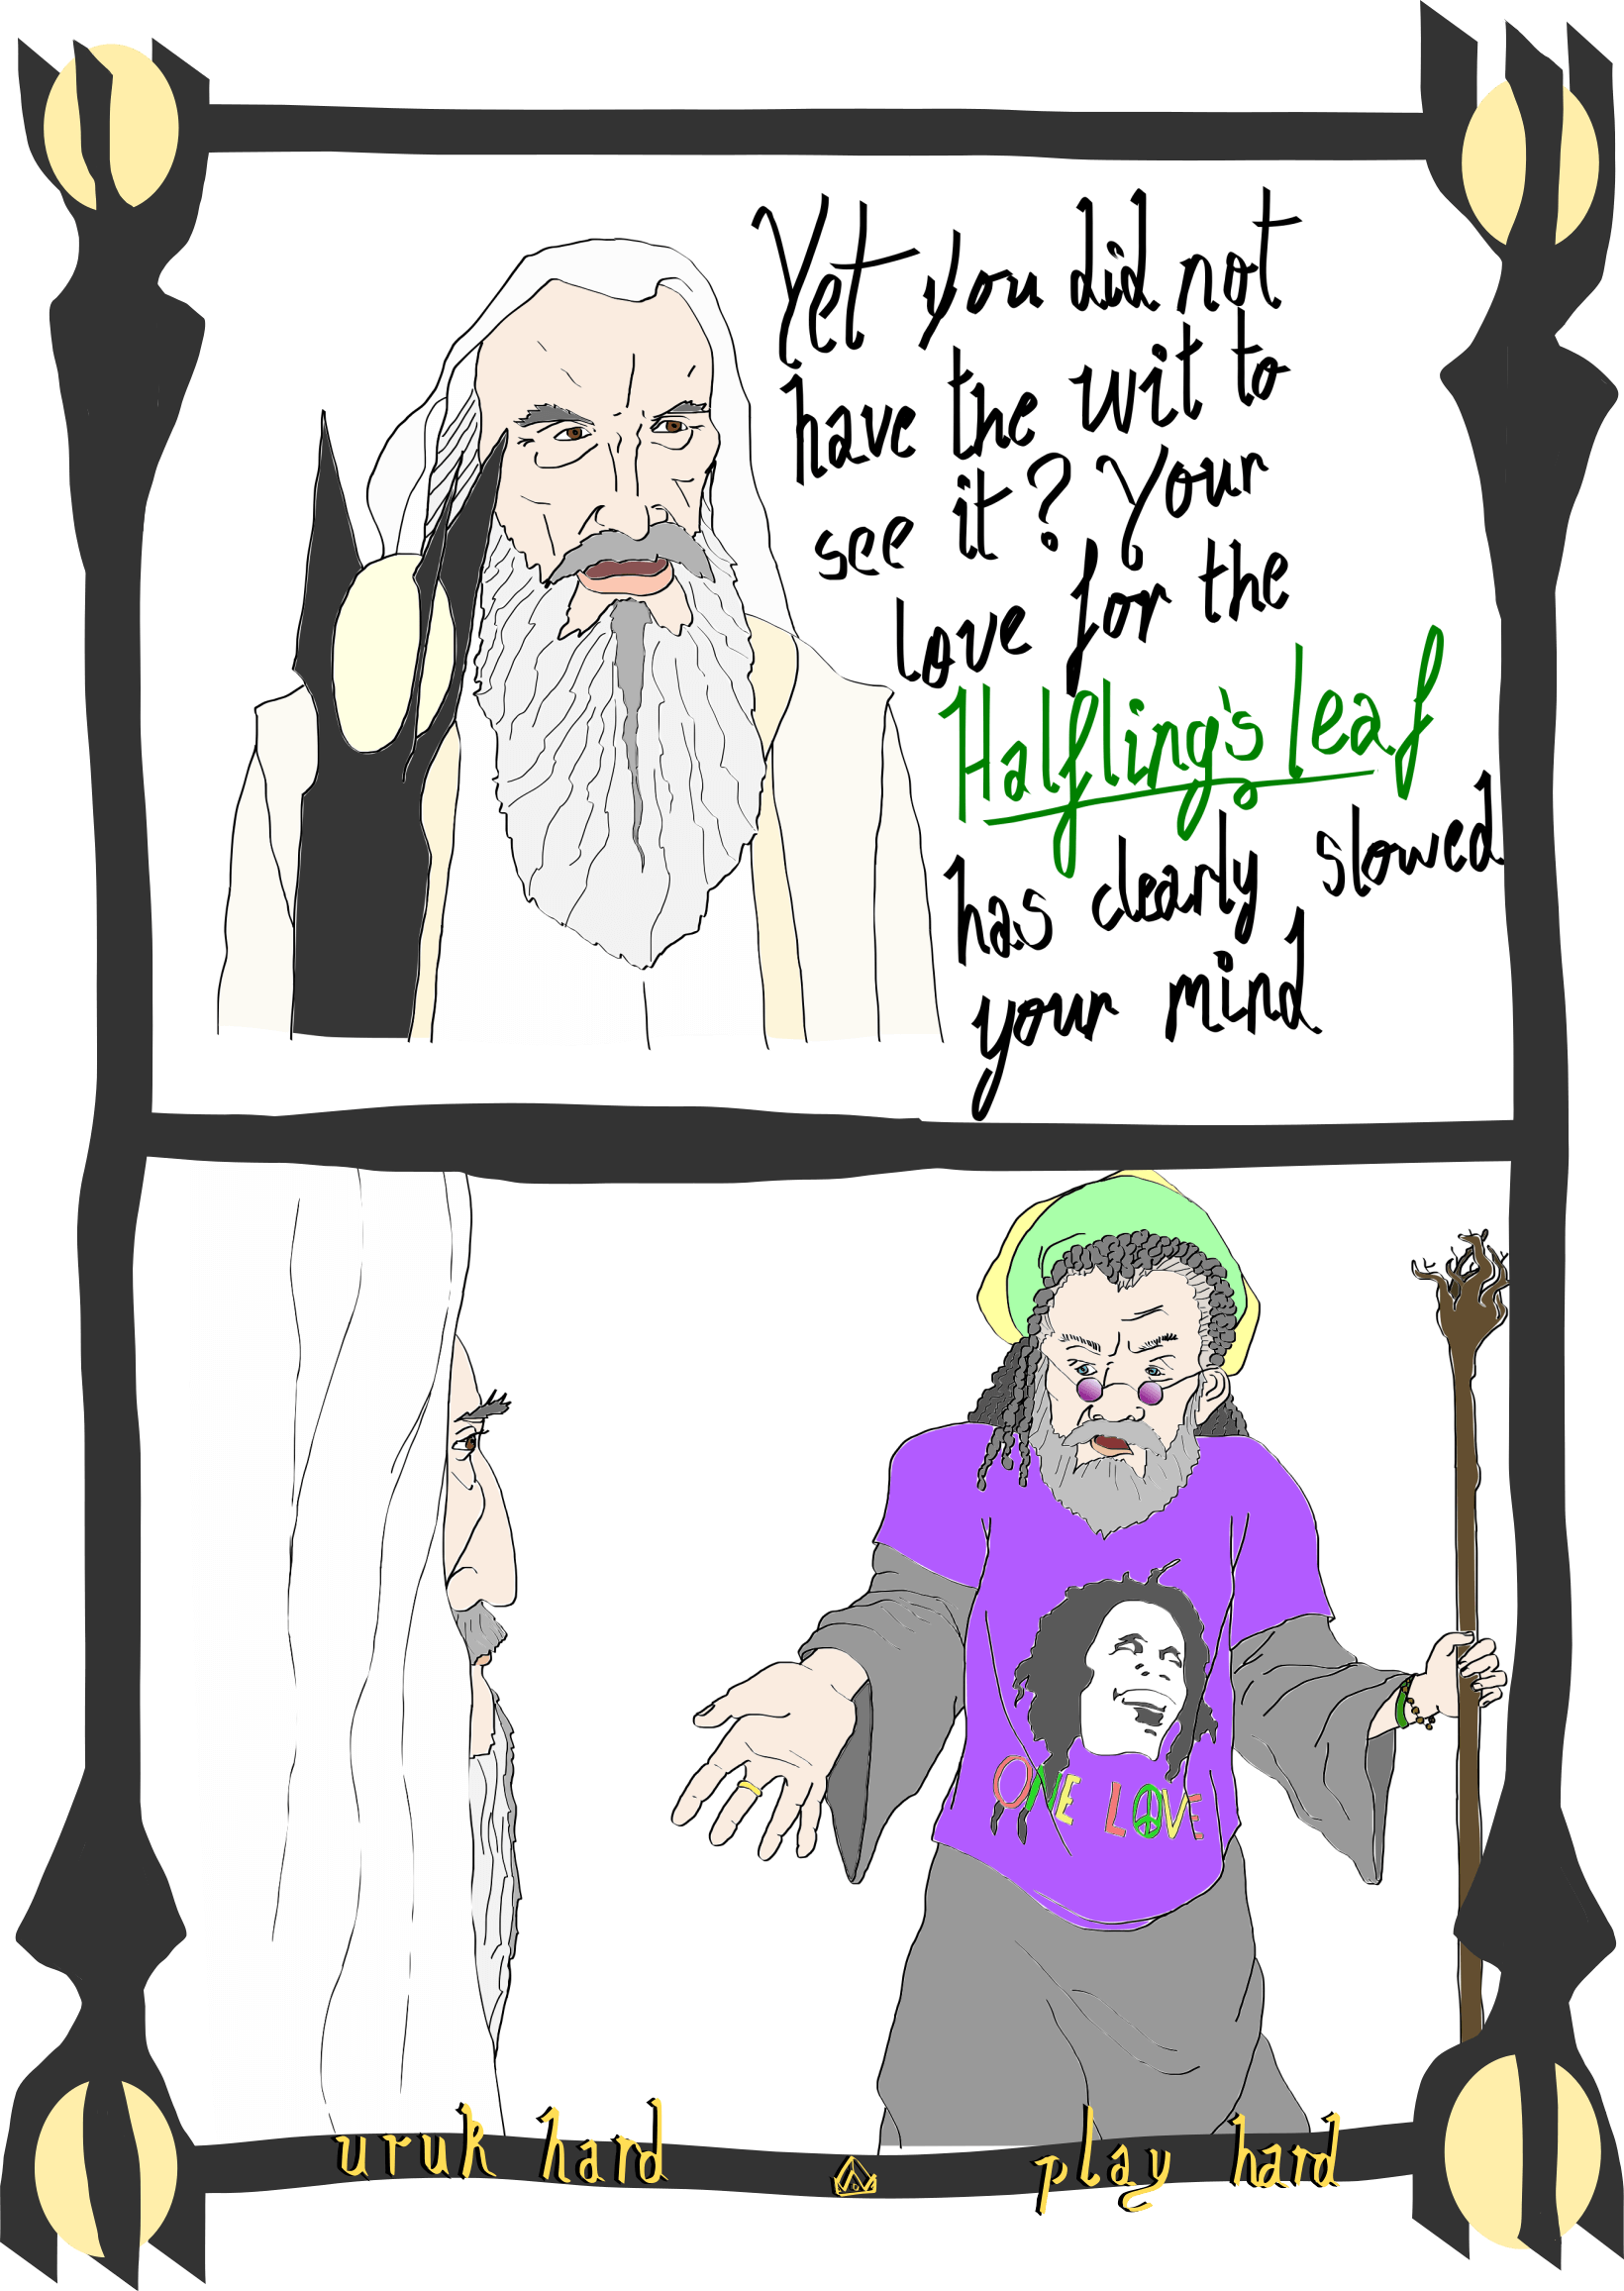 Yet you did not
have the wit to
see it? Your
love for the
Halfling's leaf
has clearly slowed
your mind
ONE LOVE
uruk hard
play hard